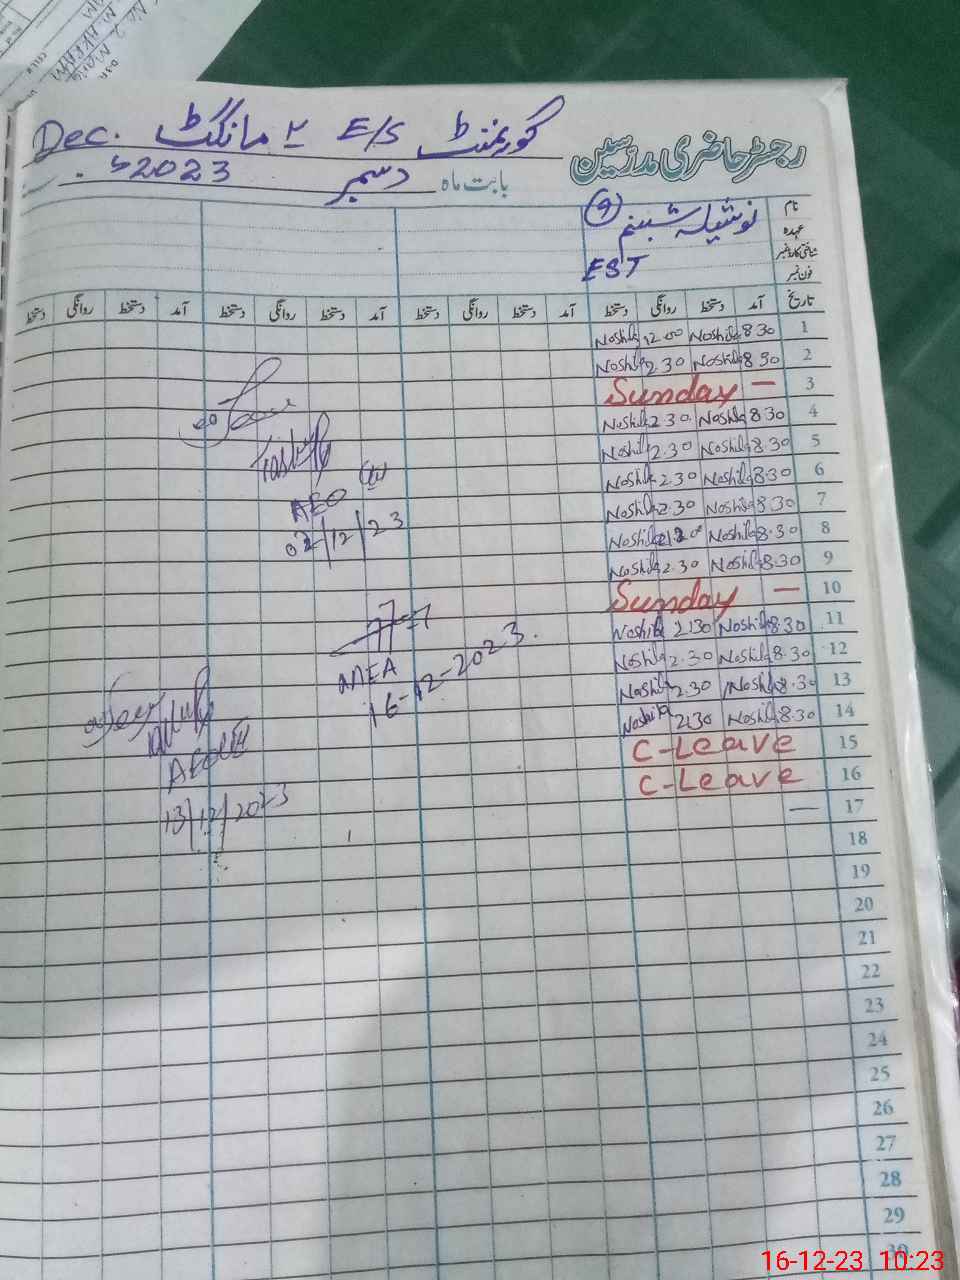 Dec. گورنمنٹ E/S ۲ مانگٹ
رجسٹر حاضری مدرسین
بابت ماہ دسمبر 2023ء
نام نوشیلہ شبنم (9)
عہدہ
شناختی کارڈ نمبر EST
فون نمبر
تاریخ آمد دستخط روانگی دستخط آمد دستخط روانگی دستخط آمد دستخط روانگی دستخط آمد دستخط روانگی دستخط
1 8.30 Noshila 12.00 Noshila
2 8.30 Noshila 2.30 Noshila
3 Sunday —
4 8.30 Noshila 2.30 Noshila
5 8.30 Noshila 2.30 Noshila
6 8.30 Noshila 2.30 Noshila
7 8.30 Noshila 2.30 Noshila
8 8.30 Noshila Noshila
9 8.30 Noshila 2.30 Noshila
10 Sunday —
11 8.30 Noshila 2.30 Noshila
12 8.30 Noshila 2.30 Noshila
13 8.30 Noshila 2.30 Noshila
14 8.30 Noshila 2.30 Noshila
15 C-Leave
16 C-Leave
17 —
18
19
20
21
22
23
24
25
26
27
28
29
30
AEO
02/12/23
MEA
16-12-2023.
AEO
13/12/2023
16-12-23 10:23